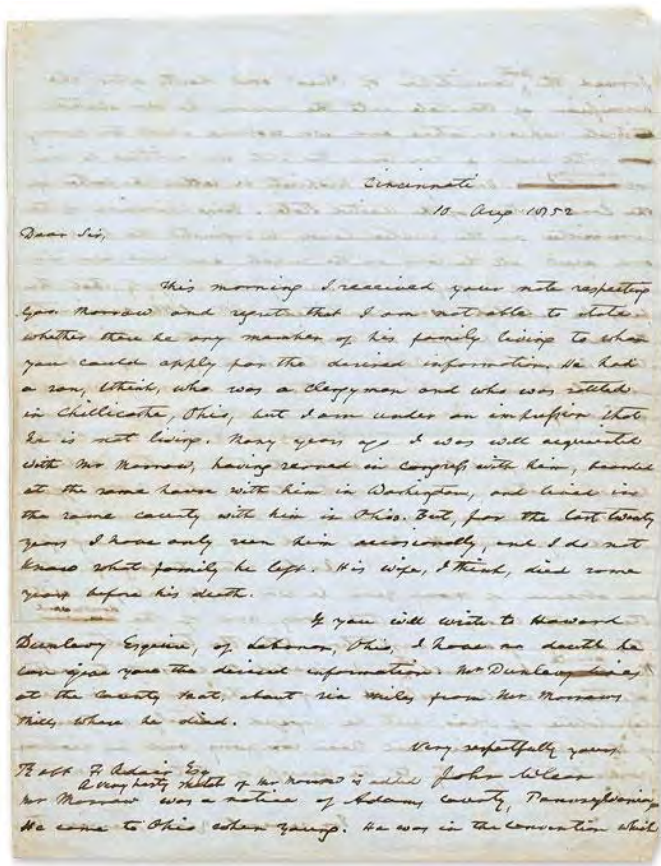 Cincinnati
10 Aug 1852
Dear Sir,
This morning I received your note respecting
Gov Morrow and regret that I am not able to state
whether there be any member of his family living to whom
you could apply for the desired information. He had
a son, I think, who was a clergyman and who was settled
in Chillicothe, Ohio, but I am under an impression that
he is not living. Many years ago I was well acquainted
with Mr Morrow, having served in Congress with him, boarded
at the same house with him in Washington, and lived in
the same county with him in Ohio. But, for the last twenty
years I have only seen him occasionally, and I do not
know what family he left. His wife, I think, died some
years before his death.
If you will write to Howard
Dunlevy Esquire, of Lebanon, Ohio, I have no doubt he
can give you the desired information. Mr Dunlevy lives
at the County seat, about six miles from Mr Morrows
Mills where he died.
Very respectfully yours
F Adair Esq John McLean
A very hasty sketch of Mr Morrow is added
Mr Morrow was a native of Adams County, Pennsylvania
He came to Ohio when young. He was in the Convention which